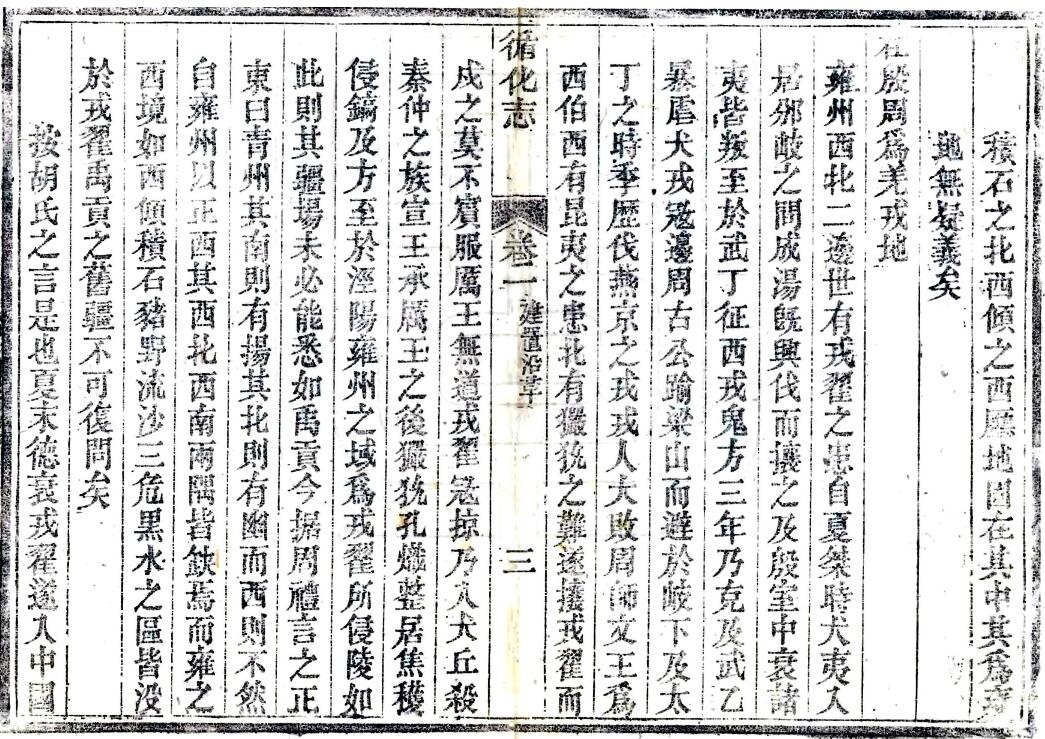 積石之北西傾之西厥地固在其中其爲雍
地無疑義矣
在殷周爲羌戎地
雍州西北二邊世有戎翟之患自夏桀時犬夷入
居邠岐之間成湯旣興伐而攘之及殷室中衰諸
夷皆叛至於武丁征西戎鬼方三年乃克及武乙
暴虐犬戎寇邊周古公踰梁山而避於岐下及太
丁之時季歷伐燕京之戎戎人大敗周師文王爲
西伯西有昆夷之患北有玁狁之難遂攘戎翟而
循化志
卷一
建置沿革
三
戍之莫不賓服厲王無道戎翟寇掠乃入犬丘殺
秦仲之族宣王承厲王之後玁狁孔熾整居焦穫
侵鎬及方至於涇陽雍州之域爲戎翟所侵陵如
此則其疆場未必能悉如禹貢今据周禮言之正
東曰青州其南則有揚其北則有幽而西則不然
自雍州以正西其西北西南兩隅皆缺焉而雍之
西境如西傾積石豬野流沙三危黑水之區皆没
於戎翟禹貢之舊疆不可復問矣
按胡氏之言是也夏末德衰戎翟遂入中國